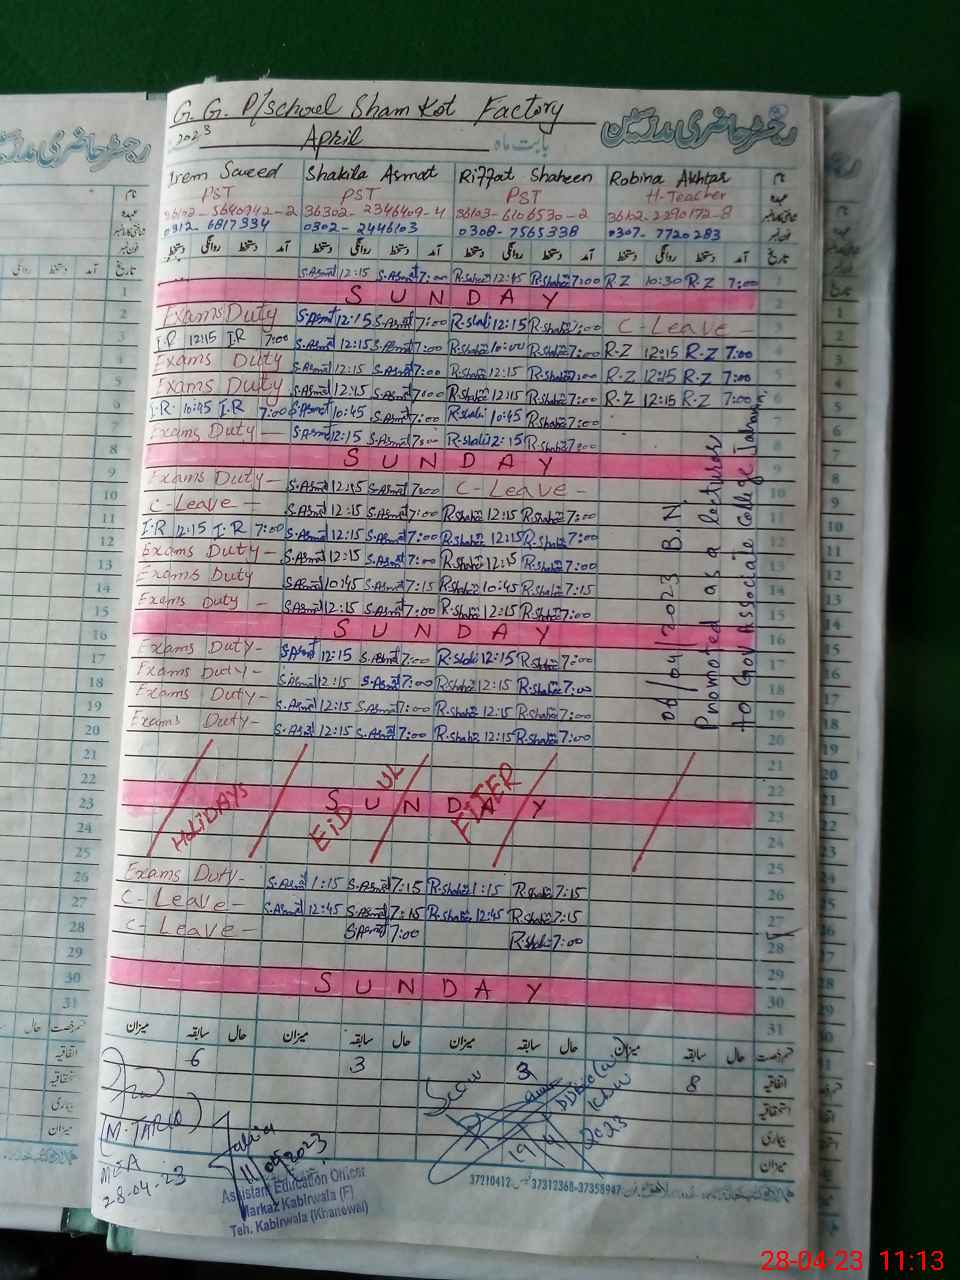 G. G. P/school Sham Kot Factory
رجسٹر حاضری مدرسین
2023 April بابت ماہ
Irem Saeed Shakila Asmat Riffat Shaheen Robina Akhtar نام
PST PST PST H-Teacher عہدہ
36302-2346409-4 36103-6106530-2
0312-6817334 0302-2446103 0308-7565338 0307-7720283 فون نمبر
دستخط روانگی دستخط آمد دستخط روانگی دستخط آمد دستخط روانگی دستخط آمد دستخط روانگی دستخط آمد تاریخ
S.Asmat 12:15 S.Asmat 7:00 R.Shahee 12:45 R.Shahee 7:00 R.Z 10:30 R.Z 7:00 1
SUNDAY 2
Exams Duty S.Asmat 12:15 S.Asmat 7:00 R.Shahee 12:15 R.Shahee 7:00 C-Leave - 3
I.R 12:15 I.R 7:00 S.Asmat 12:15 S.Asmat 7:00 R.Shahee 10:00 R.Shahee 7:00 R.Z 12:15 R.Z 7:00 4
Exams Duty S.Asmat 12:15 S.Asmat 7:00 R.Shahee 12:15 R.Shahee 7:00 R.Z 12:15 R.Z 7:00 5
Exams Duty S.Asmat 12:15 S.Asmat 7:00 R.Shahee 12:15 R.Shahee 7:00 R.Z 12:15 R.Z 7:00 6
I.R 10:45 I.R 7:00 S.Asmat 10:45 S.Asmat 7:00 R.Shahee 10:45 R.Shahee 7:00 7
Exams Duty - S.Asmat 12:15 S.Asmat 7:00 R.Shahee 12:15 R.Shahee 7:00 8
SUNDAY 9
Exams Duty - S.Asmat 12:15 S.Asmat 7:00 C-Leave - 10
C-Leave - S.Asmat 12:15 S.Asmat 7:00 R.Shahee 12:15 R.Shahee 7:00 11
I.R 12:15 I.R 7:00 S.Asmat 12:15 S.Asmat 7:00 R.Shahee 12:15 R.Shahee 7:00 12
Exams Duty - S.Asmat 12:15 S.Asmat 7:00 R.Shahee 12:15 R.Shahee 7:00 13
Exams Duty S.Asmat 10:45 S.Asmat 7:15 R.Shahee 10:45 R.Shahee 7:15 14
Exams Duty - S.Asmat 12:15 S.Asmat 7:00 R.Shahee 12:15 R.Shahee 7:00 15
SUNDAY 16
Exams Duty - S.Asmat 12:15 S.Asmat 7:00 R.Shahee 12:15 R.Shahee 7:00 17
Exams Duty - S.Asmat 12:15 S.Asmat 7:00 R.Shahee 12:15 R.Shahee 7:00 18
Exams Duty - S.Asmat 12:15 S.Asmat 7:00 R.Shahee 12:15 R.Shahee 7:00 19
Exams Duty - S.Asmat 12:15 S.Asmat 7:00 R.Shahee 12:15 R.Shahee 7:00 20
06/04/2023 B.N
Promoted as a lecturar
Ao Gov Associate College
21
22
SUNDAY 23
HOLIDAYS EID UL FITER
24
25
Exams Duty - S.Asmat 1:15 S.Asmat 7:15 R.Shahee 1:15 R.Shahee 7:15 26
C-Leave - S.Asmat 12:45 S.Asmat 7:15 R.Shahee 12:45 R.Shahee 7:15 27
C-Leave - S.Asmat 7:00 R.Shahee 7:00 28
29
SUNDAY 30
31
میزان سابقہ حال میزان سابقہ حال میزان سابقہ حال میزان سابقہ حال قسم رخصت
6 3 3 8 اتفاقیہ
استحقاقیہ
بیماری
میزان
(M. TARIQ)
MEA
28-04-23
11/04/2023
19/4/2023
Assistant Education Officer
Markaz Kabirwala (F)
Teh. Kabirwala (Khanewal)
37210412 37312368-37358947
28-04-23 11:13